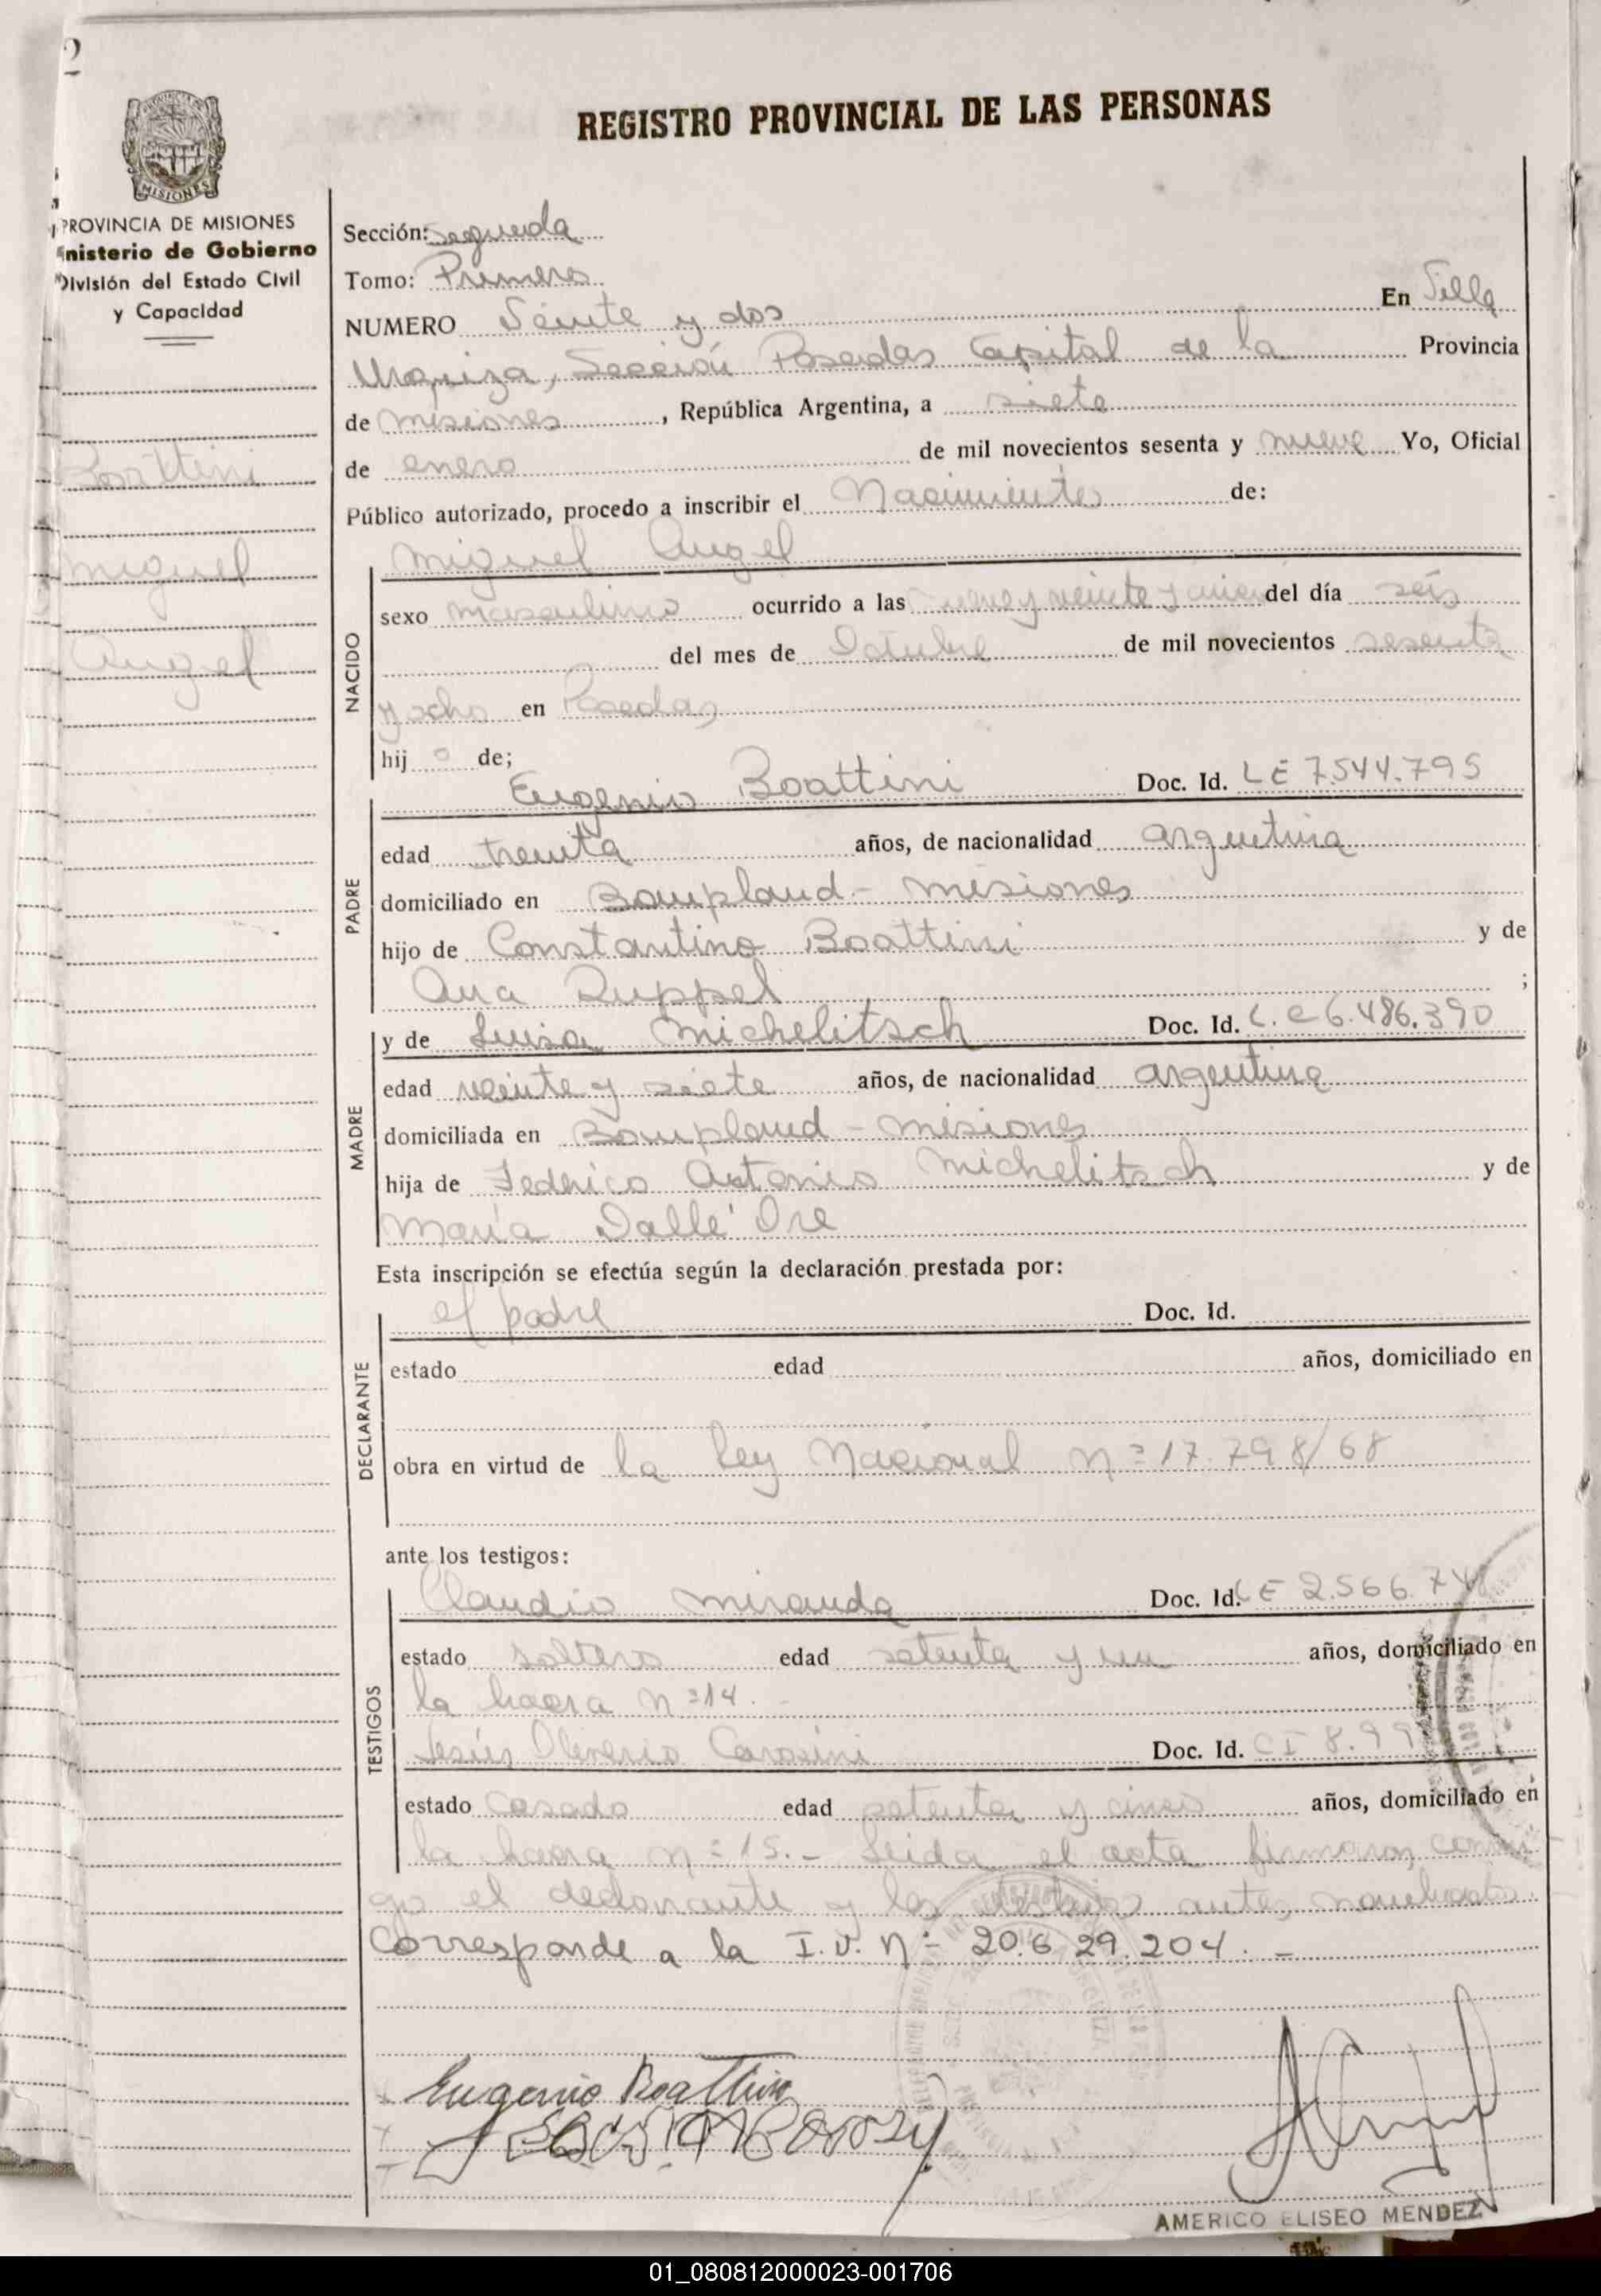 2
REGISTRO PROVINCIAL DE LAS PERSONAS
MISIONES
PROVINCIA DE MISIONES
nisterio de Gobierno
División del Estado Civil
y Capacidad
Boattini
Miguel
Angel
Sección: Segunda
Tomo: Primero
NUMERO Veinte y dos En Villa
Urquiza, Sección Posadas Capital de la Provincia
de Misiones, República Argentina, a siete
de enero de mil novecientos sesenta y nueve Yo, Oficial
Público autorizado, procedo a inscribir el Nacimiento de:
Miguel Angel
NACIDO
sexo masculino ocurrido a las nueve y veinte y cinco del día seis
del mes de Octubre de mil novecientos sesenta
y ocho en Posadas
hij o de;
Eugenio Boattini Doc. Id. LE 7.544.795
PADRE
edad treinta años, de nacionalidad argentina
domiciliado en Bompland - Misiones
hijo de Constantino Boattini y de
Ana Ruppel ;
y de Luisa Michelitsch Doc. Id. L.C 6.486.390
MADRE
edad veinte y siete años, de nacionalidad argentina
domiciliada en Bompland - Misiones
hija de Federico Antonio Michelitsch y de
María Dalle' Ore
Esta inscripción se efectúa según la declaración prestada por:
el padre Doc. Id.
DECLARANTE
estado edad años, domiciliado en
obra en virtud de la Ley Nacional Nº 17.798/68
ante los testigos:
Claudio Miranda Doc. Id. LE 2.566.74
TESTIGOS
estado soltero edad setenta y un años, domiciliado en
la hacra Nº 14.
Jesús Oliverio Doc. Id. CI 8.99
estado Casado edad setenta y cinco años, domiciliado en
la hacra Nº 15.- Leida el acta firmaron conmi
go el declarante y los testigos antes nombrados
Corresponde a la I.V. Nº 20.629.204. =
Eugenio Boattini
AMERICO ELISEO MENDEZ
01_080812000023-001706